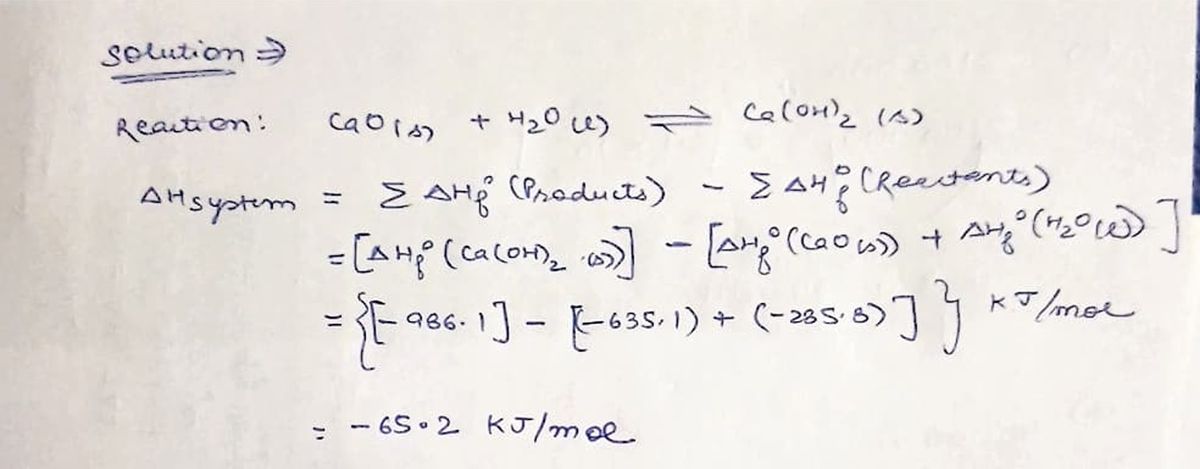 Solution ⇒
Reaction: CaO(s) + H₂O(l) ⇌ Ca(OH)₂ (s)
ΔHsystem = Σ ΔHf° (Products) - Σ ΔHf° (Reactants)
= [ΔHf° (Ca(OH)₂ (s))] - [ΔHf° (CaO(s)) + ΔHf° (H₂O(l))]
= {[-986.1] - [(-635.1) + (-285.8)]} KJ/mol
= -65.2 KJ/mol